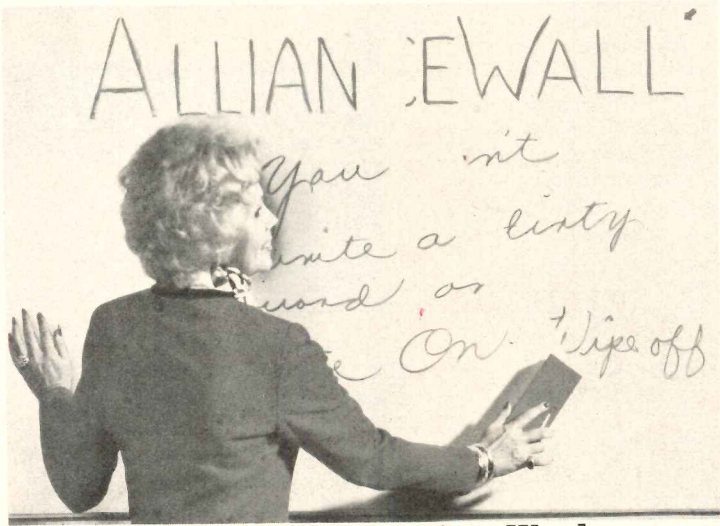 ALLIAN EWALL
You n't
write a dirty
word or
On. Wipe off